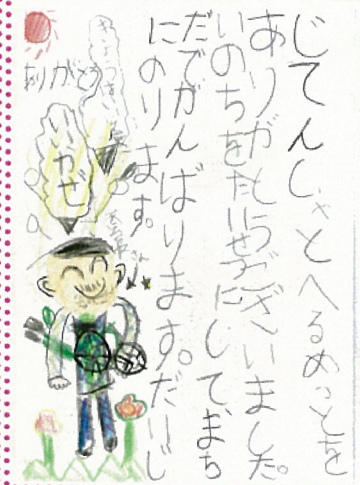 じてんしゃとへるめっとを
ありがとうございました。
いのちをたいせつにしてまち
だでがんばります。だいじ
にのります。
ありがとう
かぜ